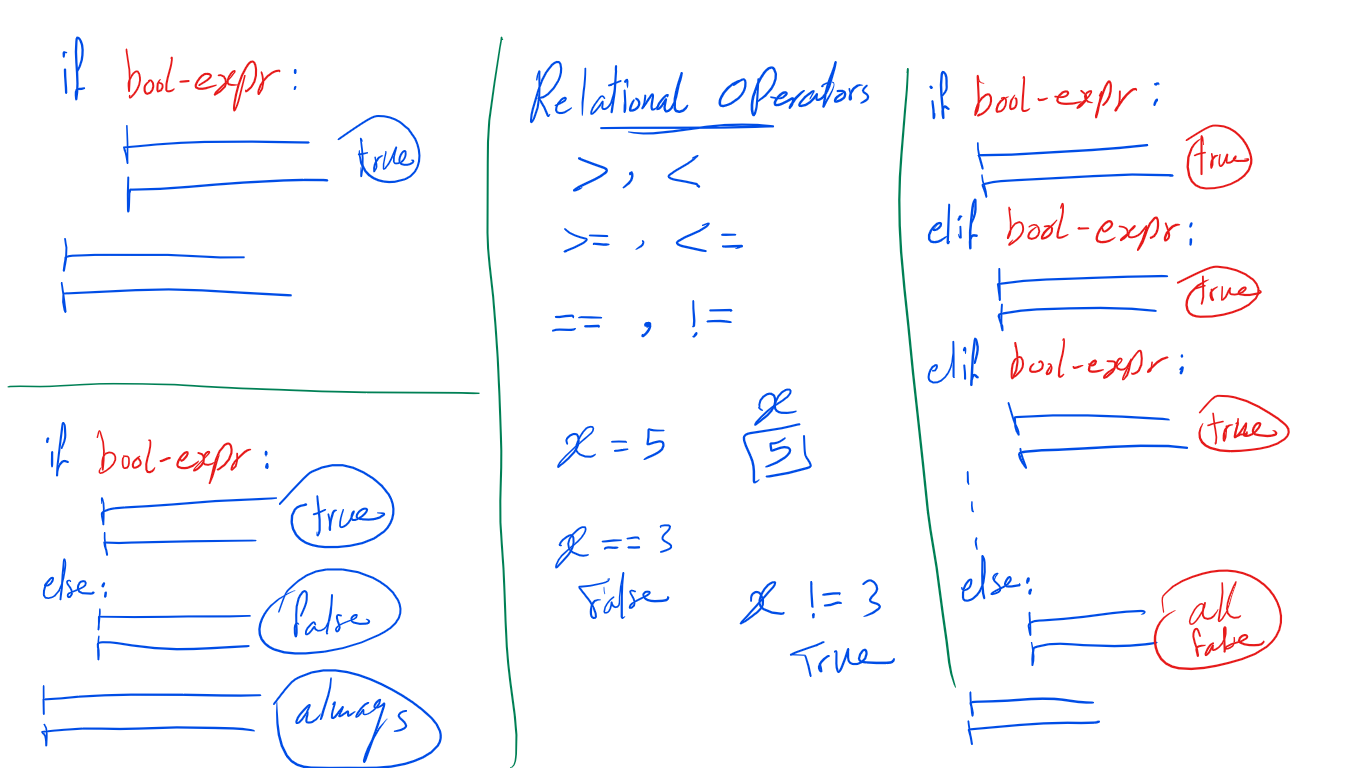 if bool-expr:
true
if bool-expr:
true
else:
false
always
Relational Operators
>, <
>=, <=
==, !=
x = 5
x
5
x == 3
False
x != 3
True
if bool-expr:
true
elif bool-expr:
true
elif bool-expr:
true
else:
all
false